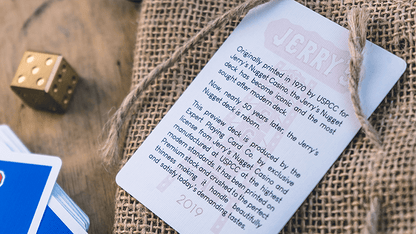 JERRY
Originally printed in 1970 by USPCC for
Jerry's Nugget Casino, the Jerry's Nugget
deck has become iconic and the most
sought after modern deck.
Now, nearly 50 years later, the Jerry's
Nugget deck is reborn.
This preview deck is produced by the
Expert Playing Card Co. by exclusive
license from Jerry's Nugget Casino and
manufactured at USPCC at the highest
modern standards. It has been printed on
Premium stock and crushed to the perfect
thinness making it handle beautifully
and satisfy today's demanding tastes.
2019